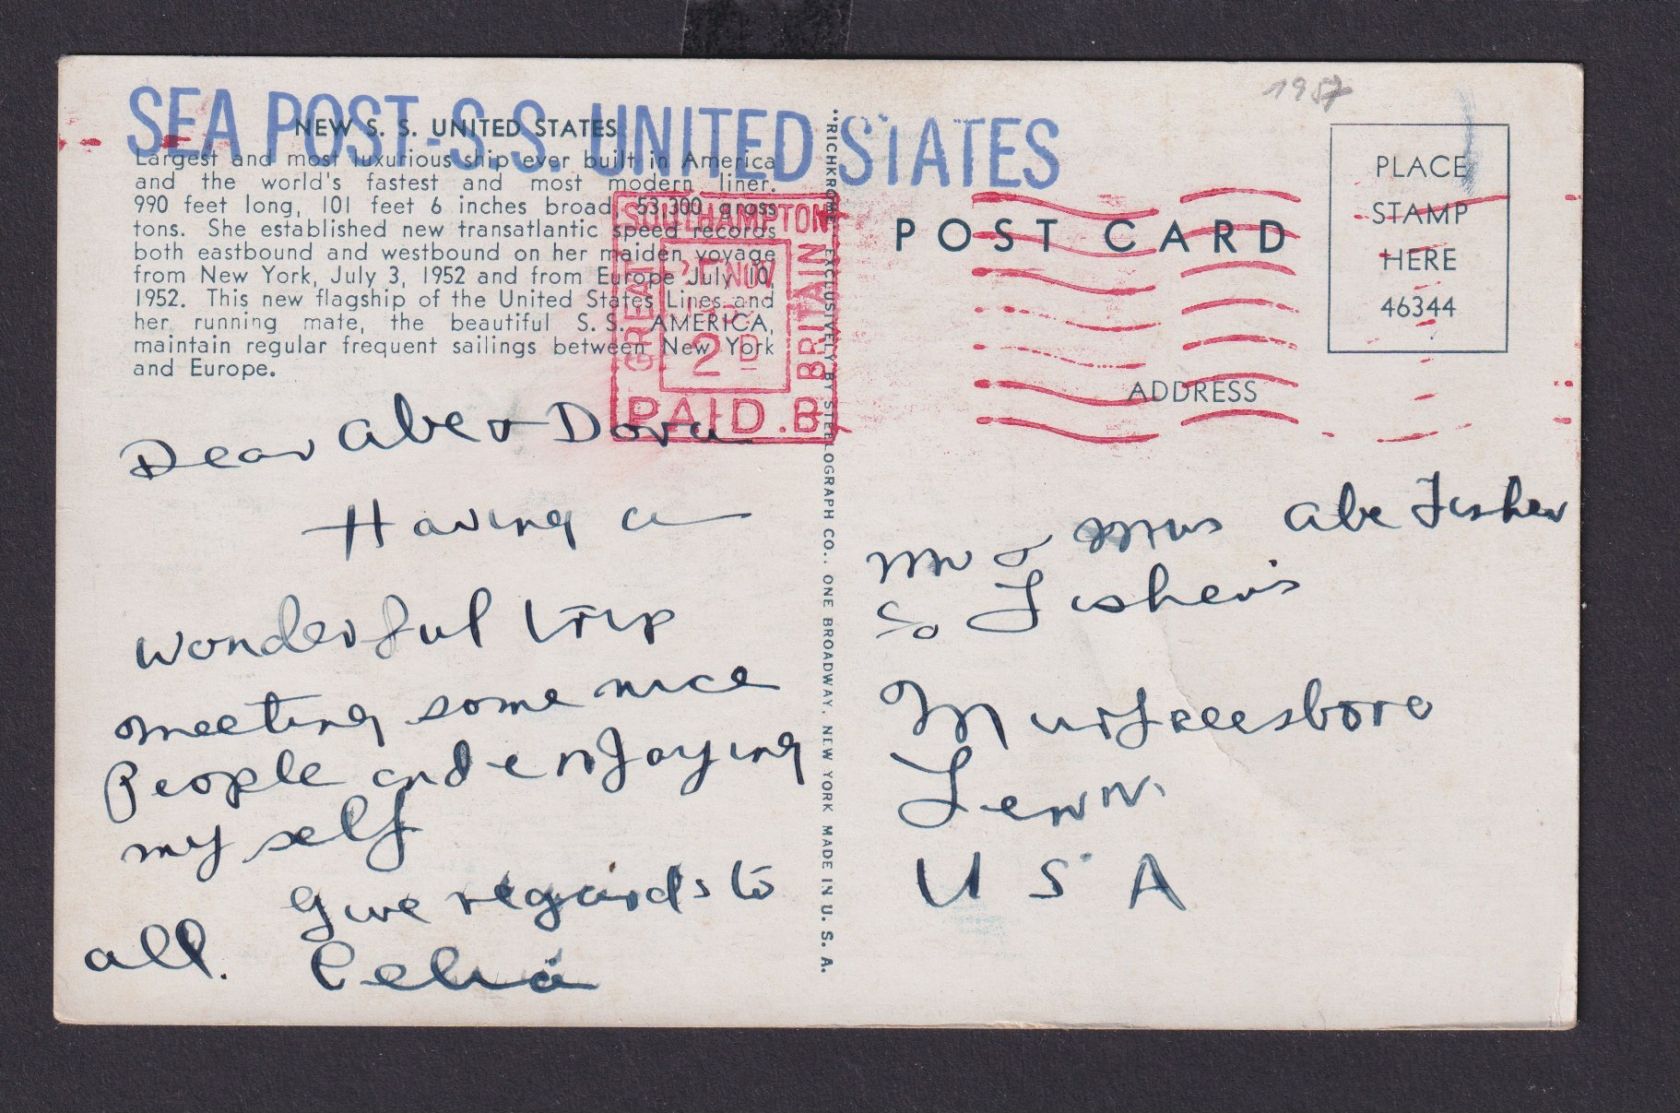 1957
SEA POST-S.S. UNITED STATES
NEW S. S. UNITED STATES
Largest and most luxurious ship ever built in America
and the world's fastest and most modern liner.
990 feet long, 101 feet 6 inches broad, 53,300 gross
tons. She established new transatlantic speed records
both eastbound and westbound on her maiden voyage
from New York, July 3, 1952 and from Europe July 10,
1952. This new flagship of the United States Lines and
her running mate, the beautiful S. S. AMERICA,
maintain regular frequent sailings between New York
and Europe.
SOUTHAMPTON
GREAT BRITAIN
NOV
2D
PAID.B
Dear Abe & Dora
Having a
wonderful trip
meeting some nice
People and enjoying
my self
Give regards to
all. Celia
"RICHKROME" EXCLUSIVELY BY STEELOGRAPH CO., ONE BROADWAY, NEW YORK MADE IN U. S. A.
POST CARD
PLACE
STAMP
HERE
46344
ADDRESS
Mr & Mrs Abe Fisher
c/o Fisher's
Murfreesboro
Tenn.
U S A